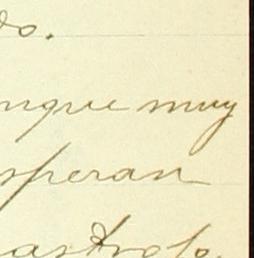 os.
nque muy
speran
astrofe.